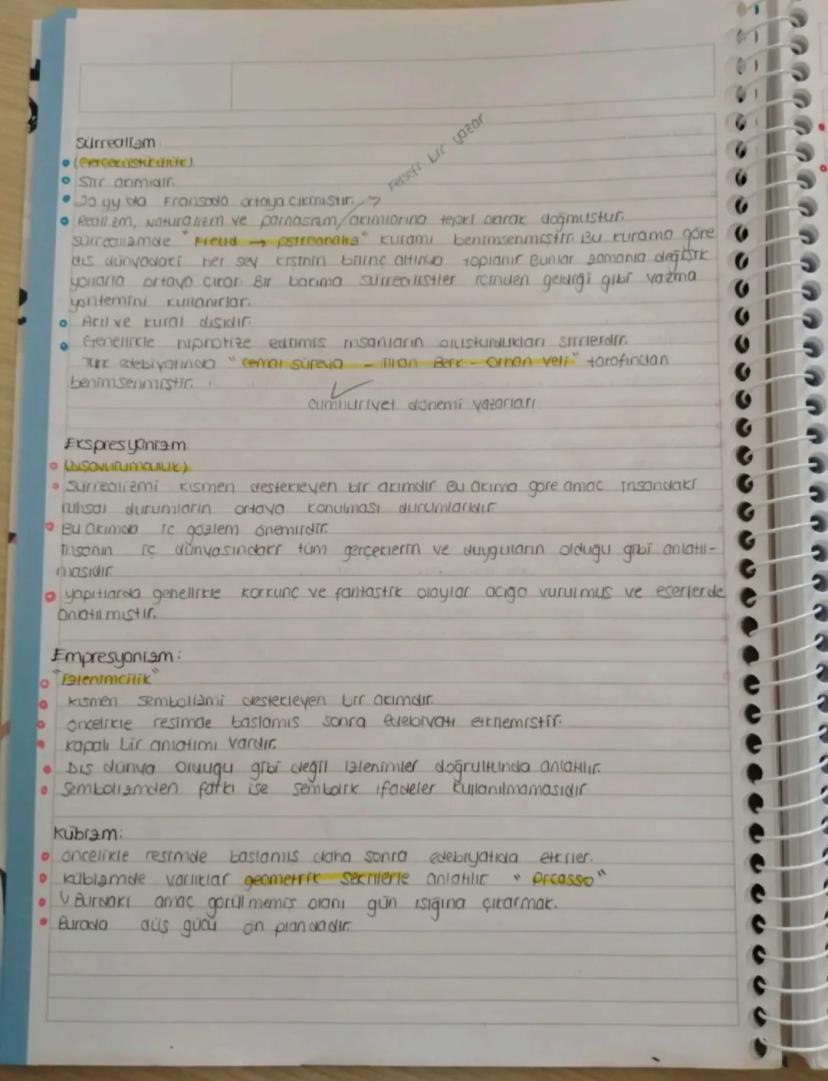 Sürrealizm
(Gerçeküstücülük)
Şiir akımıdır.
20.yy'da Fransada ortaya çıkmıştır. →
bir yazar
Realizm, Naturalizm ve parnasizm akımlarına tepki olarak doğmuştur.
Sürrealizmde "Freud → psikoanaliz" kuramı benimsenmiştir. Bu kurama göre
dış dünyadaki her şey kişinin bilinç altında toplanır Bunlar zamanla değişik
yollarla ortaya çıkar. Bir bakıma sürrealistler içinden geldiği gibi yazma
yöntemini kullanırlar.
Akıl ve kural dışıdır.
Genellikle hipnotize edilmiş insanların oluşturdukları şiirlerdir.
Türk edebiyatında "Cemal Süreya - İlhan Berk - Orhan Veli" tarafından
benimsenmiştir.
Cumhuriyet dönemi yazarları
Ekspresyonizm
(Dışavurumculuk)
Sürrealizmi kısmen destekleyen bir akımdır Bu akıma göre amaç insandaki
ruhsal durumların ortaya konulması durumlarıdır
Bu akımda iç gözlem önemlidir.
İnsanın iç dünyasındaki tüm gerçeklerin ve duyguların olduğu gibi anlatıl-
masıdır
yapıtlarda genellikle korkunç ve fantastik olaylar açığa vurulmuş ve eserlerde
anlatılmıştır.
Empresyonizm:
"İzlenimcilik"
Kısmen sembolizmi destekleyen bir akımdır.
öncelikle resimde başlamış sonra edebiyatı etkilemiştir.
kapalı bir anlatımı vardır.
Dış dünya olduğu gibi değil izlenimler doğrultunda anlatılır.
Sembolizmden farkı ise sembolik ifadeler kullanılmamasıdır
Kübizm:
öncelikle resimde başlamış daha sonra edebiyatıda etkiler.
kübizmde varlıklar geometrik şekillerle anlatılır "Picasso"
Burdaki amaç görülmemiş olanı gün ışığına çıkarmak.
Burada düş gücü ön plandadır.